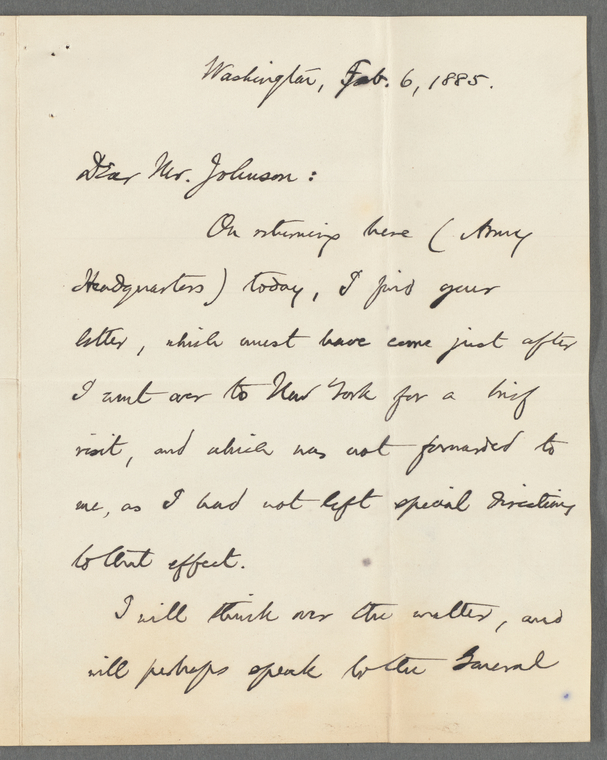 Washington, Feb. 6, 1885.
Dear Mr. Johnson:
On returning here (Army
Headquarters) today, I find your
letter, which must have come just after
I went over to New York for a brief
visit, and which was not forwarded to
me, as I had not left special directions
to that effect.
I will think over the matter, and
will perhaps speak to the General